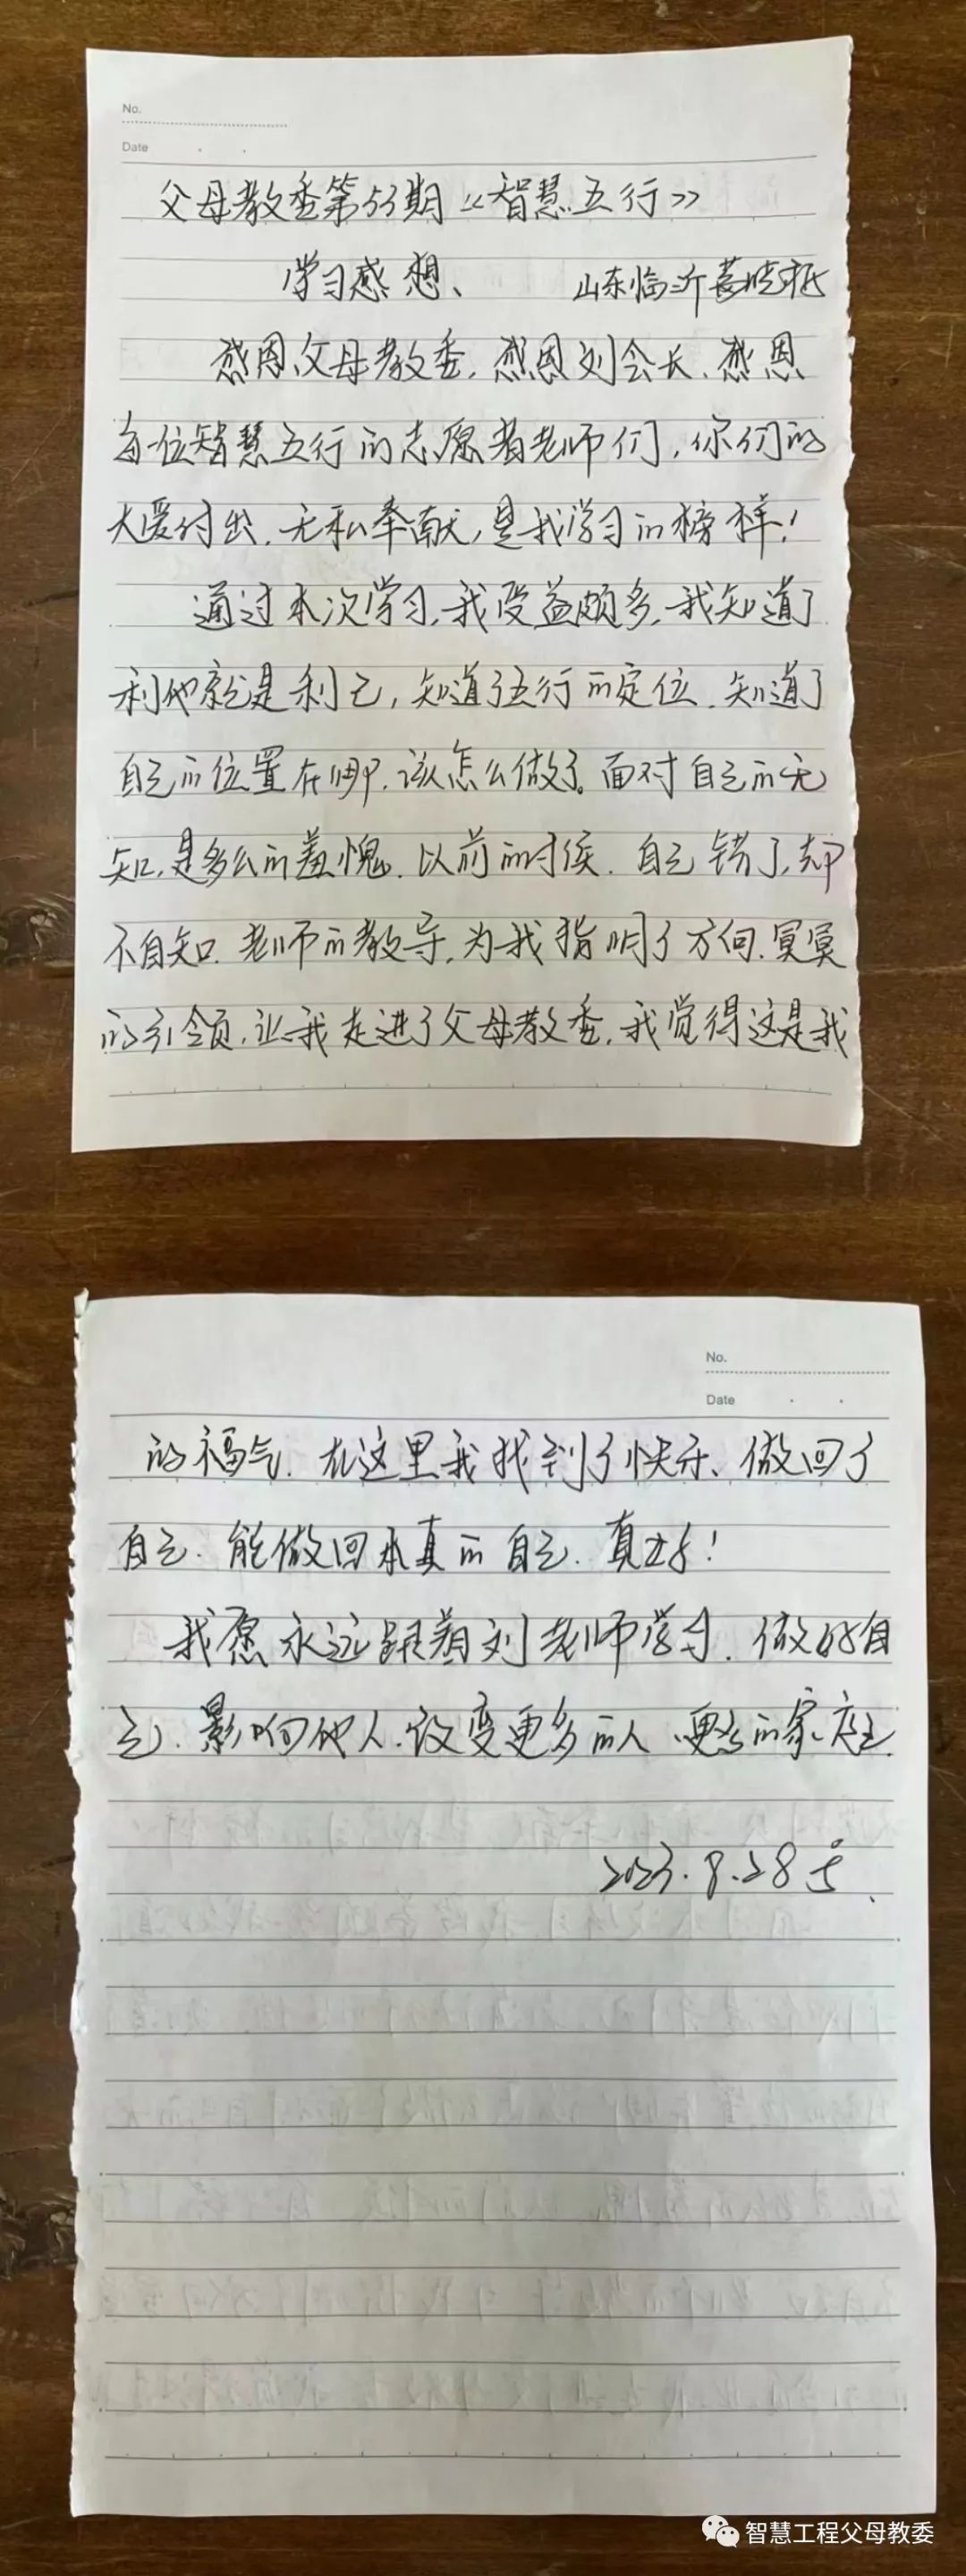 No.
Date
父母教委第55期《智慧五行》
学习感想、 山东临沂
感恩父母教委,感恩刘会长、感恩
每位智慧五行的志愿者老师们,你们的
大爱付出、无私奉献,是我学习的榜样!
通过本次学习,我受益颇多,我知道了
利他就是利己,知道了五行的定位、知道了
自己的位置在哪,该怎么做了。面对自己的无
知,是多么的羞愧、以前的时候、自己错了,却
不自知、老师的教导,为我指明了方向、冥冥
的引领,让我走进了父母教委,我觉得这是我
No.
Date
的福气、在这里我找到了快乐、做回了
自己、能做回本真的自己、真好!
我愿永远跟着刘老师学习、做好自
己、影响他人、改变更多的人、更多的家庭、
2023.8.28号、
智慧工程父母教委